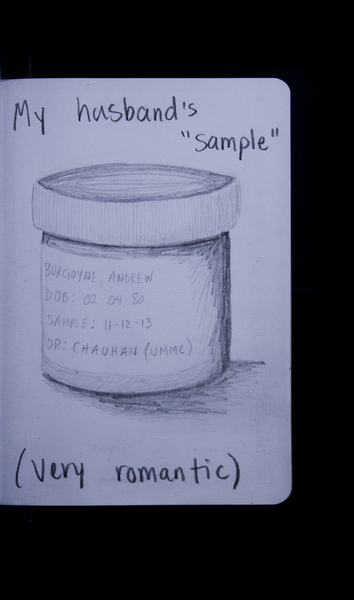 My husband's
"sample"
BURGOYNE, ANDREW
DOB: 02-04-80
SAMPLE: 11-12-13
DR: CHAUHAN (UMMC)
(very romantic)